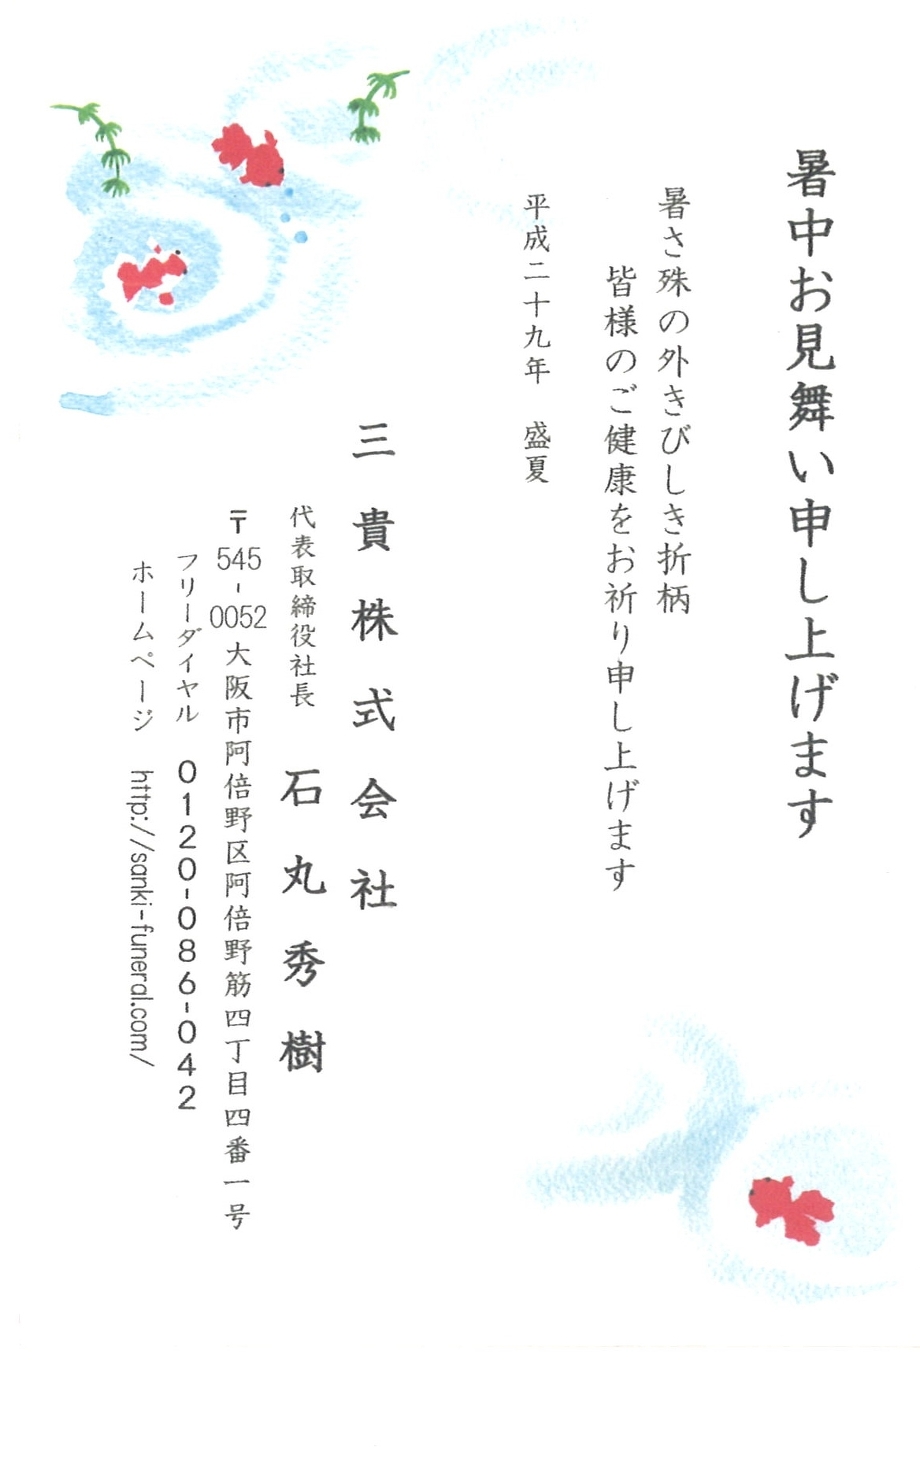 暑中お見舞い申し上げます
暑さ殊の外きびしき折柄
皆様のご健康をお祈り申し上げます
平成二十九年　盛夏
三貴株式会社
代表取締役社長　石丸秀樹
〒545-0052大阪市阿倍野区阿倍野筋四丁目四番一号
フリーダイヤル　0120-086-042
ホームページ　http://sanki-funeral.com/